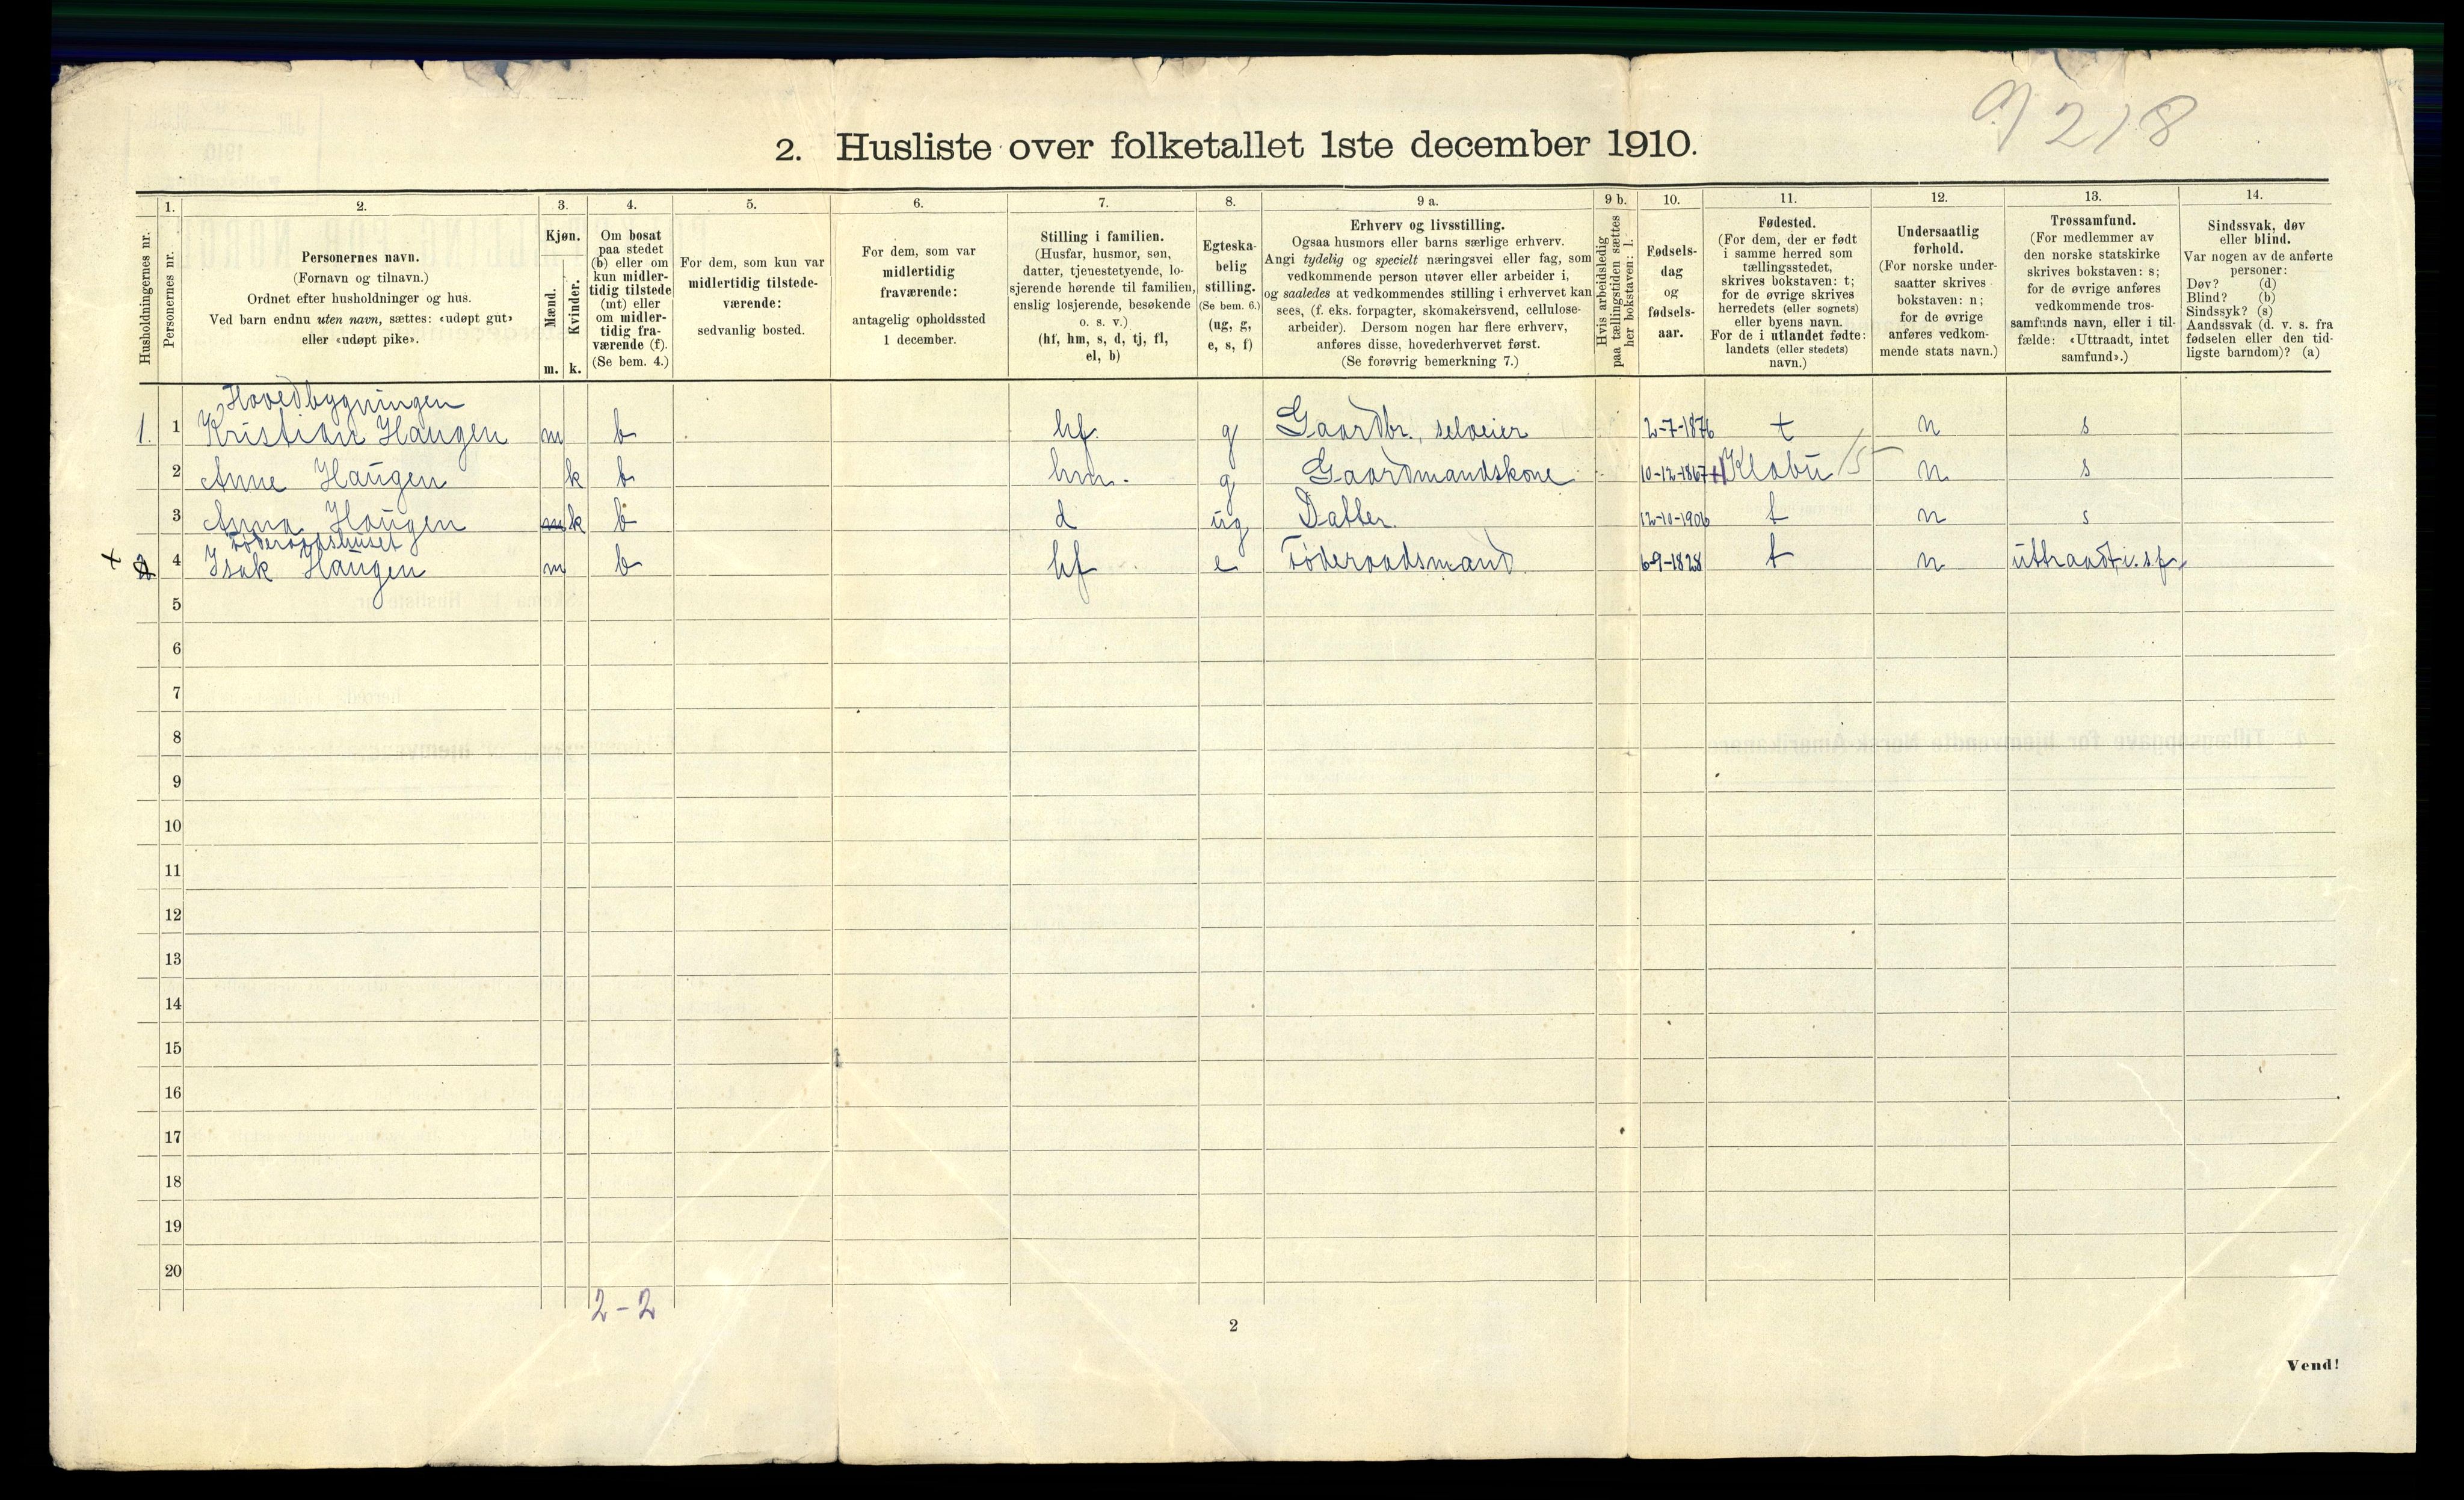 9) 218
2. Husliste over folketallet 1ste december 1910.
Husholdningernes nr.
1. Personernes nr.
2. Personernes navn. (Fornavn og tilnavn.) Ordnet efter husholdninger og hus. Ved barn endnu uten navn, sættes: «udøpt gut» eller «udøpt pike».
3. Kjøn. Mænd. Kvinder. m. k.
4. Om bosat paa stedet (b) eller om kun midlertidig tilstede (mt) eller om midlertidig fraværende (f). (Se bem. 4.)
5. For dem, som kun var midlertidig tilstedeværende: sedvanlig bosted.
6. For dem, som var midlertidig fraværende: antagelig opholdssted 1 december.
7. Stilling i familien. (Husfar, husmor, søn, datter, tjenestetyende, losjerende hørende til familien, enslig losjerende, besøkende o. s. v.) (hf, hm, s, d, tj, fl, el, b)
8. Egteskabelig stilling. (Se bem. 6.) (ug, g, e, s, f)
9 a. Erhverv og livsstilling. Ogsaa husmors eller barns særlige erhverv. Angi tydelig og specielt næringsvei eller fag, som vedkommende person utøver eller arbeider i, og saaledes at vedkommendes stilling i erhvervet kan sees, (f. eks. forpagter, skomakersvend, cellulosearbeider). Dersom nogen har flere erhverv, anføres disse, hovederhvervet først. (Se forøvrig bemerkning 7.)
9 b. Hvis arbeidsledig paa tællingstiden sættes her bokstaven: l.
10. Fødselsdag og fødselsaar.
11. Fødested. (For dem, der er født i samme herred som tællingsstedet, skrives bokstaven: t; for de øvrige skrives herredets (eller sognets) eller byens navn. For de i utlandet fødte: landets (eller stedets) navn.)
12. Undersaatlig forhold. (For norske undersaatter skrives bokstaven: n; for de øvrige anføres vedkommende stats navn.)
13. Trossamfund. (For medlemmer av den norske statskirke skrives bokstaven: s; for de øvrige anføres vedkommende trossamfunds navn, eller i tilfælde: «Uttraadt, intet samfund».)
14. Sindssvak, døv eller blind. Var nogen av de anførte personer: Døv? (d) Blind? (b) Sindssyk? (s) Aandssvak (d. v. s. fra fødselen eller den tidligste barndom)? (a)
Hovedbygningen
1. 1 Kristian Haugen m b hf. g Gaardbr., selveier 2-7-1876 t n s
2 Anne Haugen k b hm. g Gaardmandskone 10-12-1867 Klæbu 15 n s
3 Anna Haugen m k b d ug Datter. 12-10-1906 t n s
Føderaadshuset
+ 2 4 Isak Haugen m b hf e Føderaadsmand 6-9-1828 t n uttraadt, i. s.f.
5
6
7
8
9
10
11
12
13
14
15
16
17
18
19
20
2-2
2
Vend!